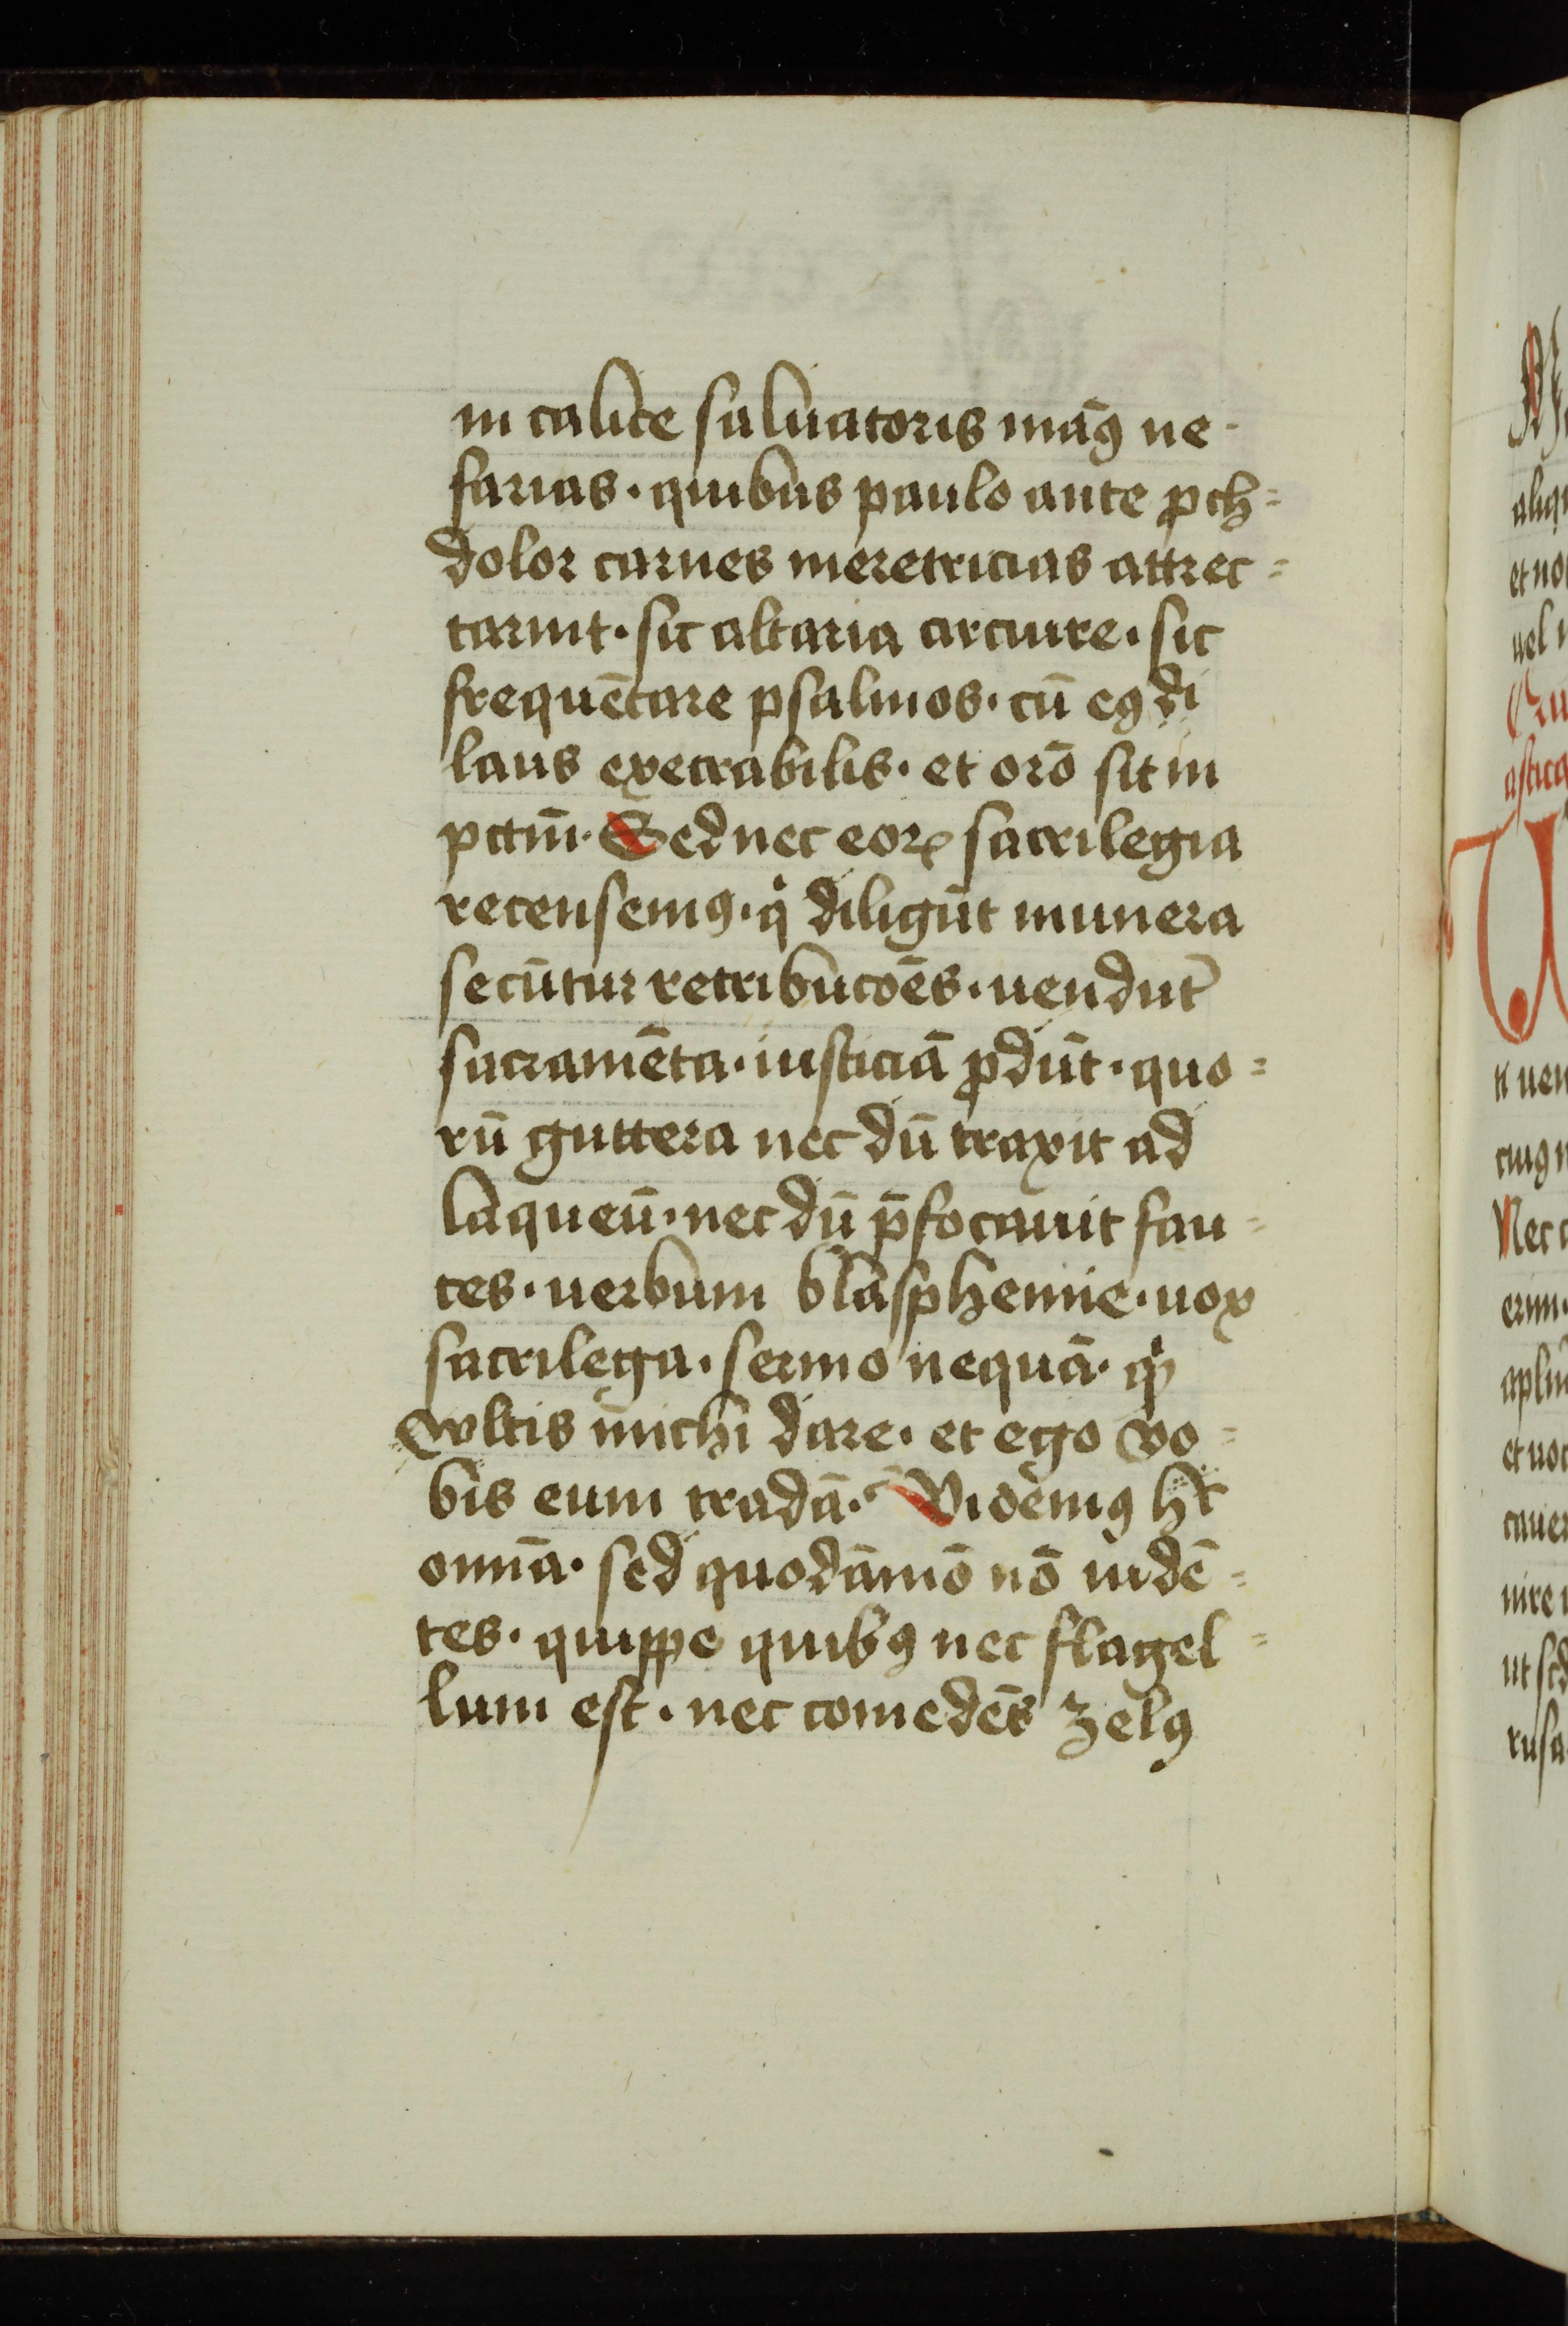 in calice saluatoris manꝯ ne-
farias · quibus paulo ante ꝓch=
dolor carnes meretricias attrec=
tarint · sic altaria circuire · sic
frequētare psalmos · cū eꝯdi
laus execrabilis · et orō sit in
pctm̄ · Sed nec eoꝝ sacrilegia
recensemꝯ · qͥ diligūt munera
secūtur retribucōes · uendūt
sacramēta · iusticiā ꝓdūt · quo=
rū guttera nec dū traxit ad
laqueū · nec dū p̄focauit fau=
ces · uerbum blasphemie · uox
sacrilega · sermo nequā · qͥd
wltis michi dare · et ego vo=
bis eum tradā · Videmꝯ h̄
omīa · sed quodāmō nō uidē=
tes · quippe quibꝯ nec flagel=
lum est · nec comedēs zelꝯ
aliq
et no
uel
astica
n uen
cuiꝯ
Nec
erim
et uoc
cauer
nire